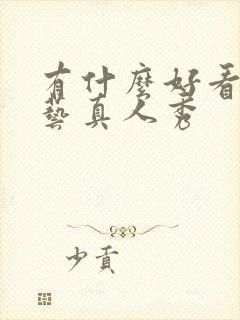 有什麼好看
藝真人秀
少貢